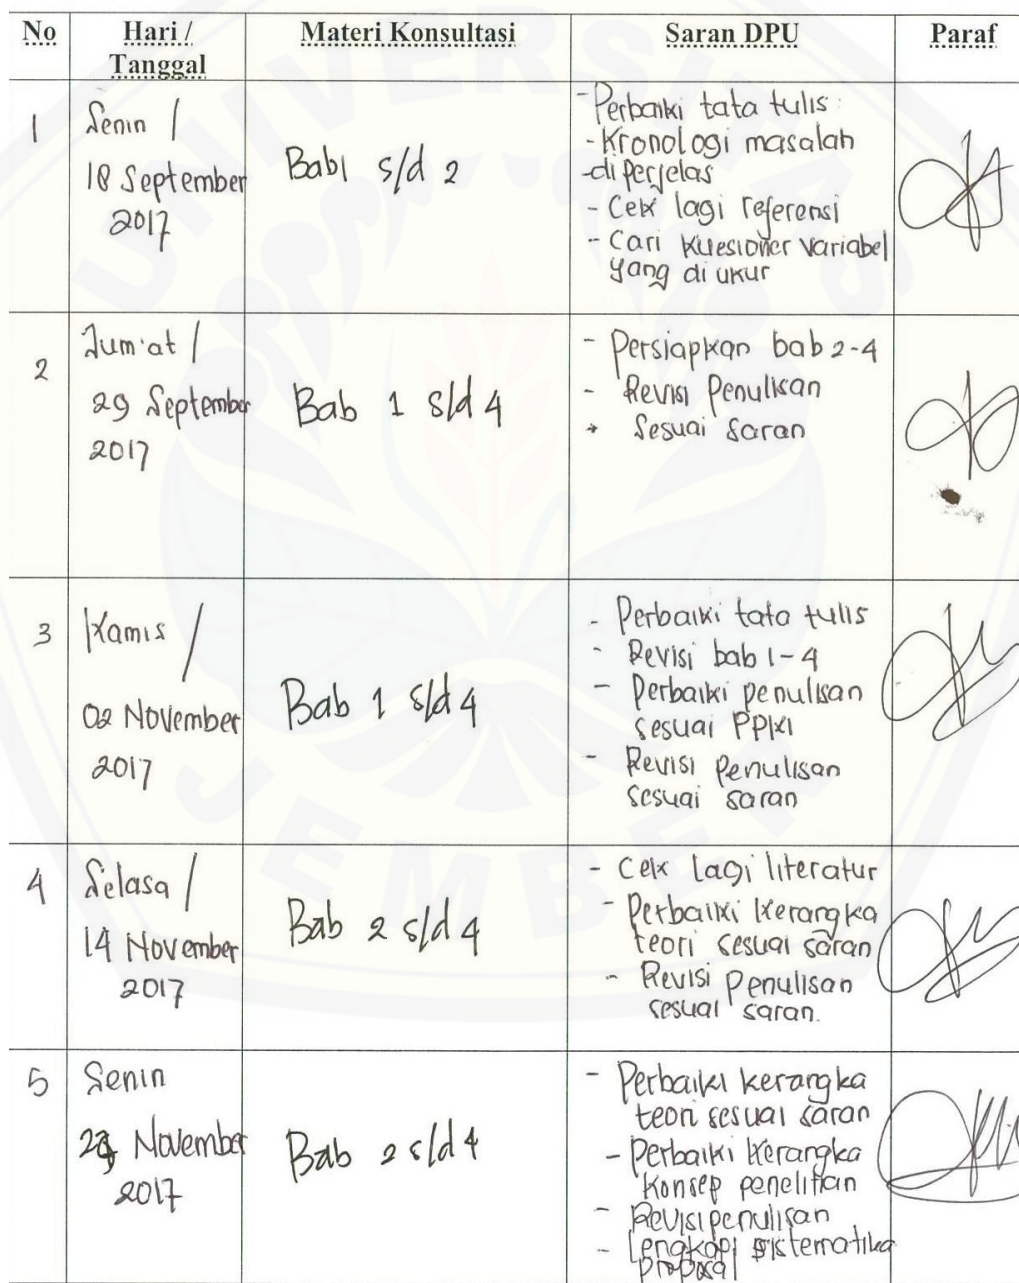 No Hari / Materi Konsultasi Saran DPU Paraf
Tanggal
1 Senin /
18 September
2017
Bab1 s/d 2
- Perbaiki tata tulis
- Kronologi masalah
- diperjelas
- Cek lagi referensi
- Cari kuesioner variabel
yang di ukur
2 Jum'at /
29 September
2017
Bab 1 s/d 4
- Persiapkan bab 2-4
- Revisi Penulisan
Sesuai saran
3 Kamis /
02 November
2017
Bab 1 s/d 4
- Perbaiki tata tulis
- Revisi bab 1-4
- Perbaiki penulisan
sesuai PPKI
- Revisi Penulisan
sesuai saran
4 Selasa /
14 November
2017
Bab 2 s/d 4
- Cek lagi literatur
- Perbaiki kerangka
teori sesuai saran
- Revisi Penulisan
sesuai saran.
5 Senin
November
2017
Bab 2 s/d 4
- Perbaiki kerangka
teori sesuai saran
- Perbaiki kerangka
Konsep penelitian
- Revisi penulisan
- Lengkapi sistematika
proposal
UNIVERSITAS
JEMBER